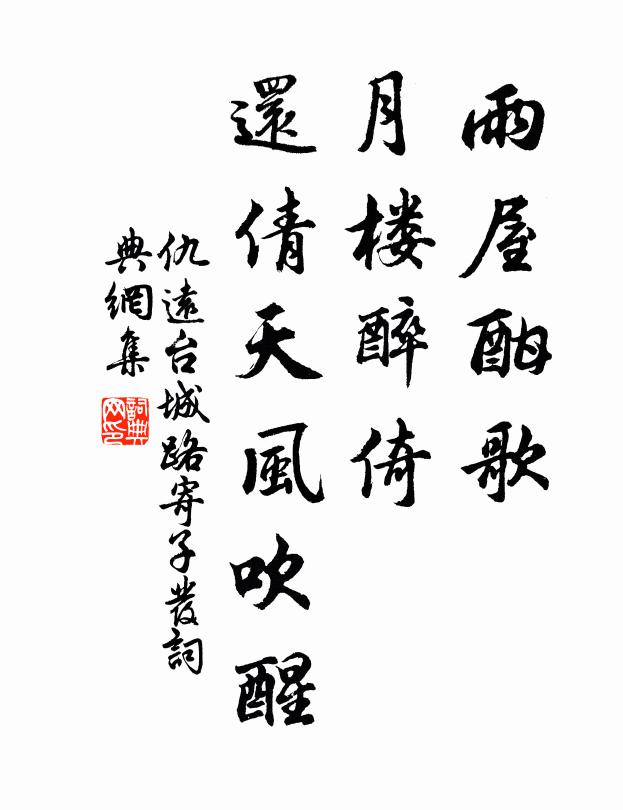 雨屋酣歌
月楼醉倚
還倩天風吹醒
仇遠台城路寄子發詞
典網集
詞典
网印